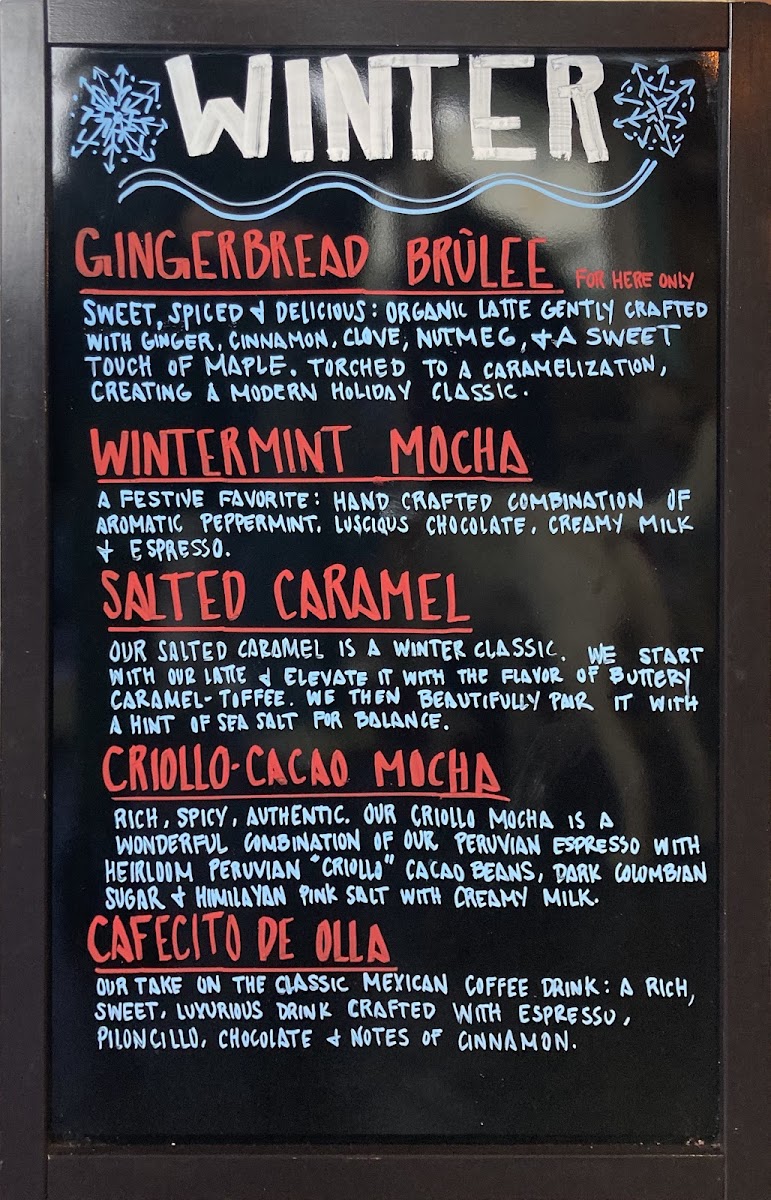 WINTER
GINGERBREAD BRÛLEE FOR HERE ONLY
SWEET, SPICED & DELICIOUS: ORGANIC LATTE GENTLY CRAFTED
WITH GINGER, CINNAMON, CLOVE, NUTMEG, & A SWEET
TOUCH OF MAPLE. TORCHED TO A CARAMELIZATION,
CREATING A MODERN HOLIDAY CLASSIC.
WINTERMINT MOCHA
A FESTIVE FAVORITE: HAND CRAFTED COMBINATION OF
AROMATIC PEPPERMINT, LUSCIOUS CHOCOLATE, CREAMY MILK
& ESPRESSO.
SALTED CARAMEL
OUR SALTED CARAMEL IS A WINTER CLASSIC. WE START
WITH OUR LATTE & ELEVATE IT WITH THE FLAVOR OF BUTTERY
CARAMEL-TOFFEE. WE THEN BEAUTIFULLY PAIR IT WITH
A HINT OF SEA SALT FOR BALANCE.
CRIOLLO-CACAO MOCHA
RICH, SPICY, AUTHENTIC. OUR CRIOLLO MOCHA IS A
WONDERFUL COMBINATION OF OUR PERUVIAN ESPRESSO WITH
HEIRLOOM PERUVIAN "CRIOLLO" CACAO BEANS, DARK COLOMBIAN
SUGAR & HIMILAYAN PINK SALT WITH CREAMY MILK.
CAFECITO DE OLLA
OUR TAKE ON THE CLASSIC MEXICAN COFFEE DRINK: A RICH,
SWEET, LUXURIOUS DRINK CRAFTED WITH ESPRESSO,
PILONCILLO, CHOCOLATE & NOTES OF CINNAMON.